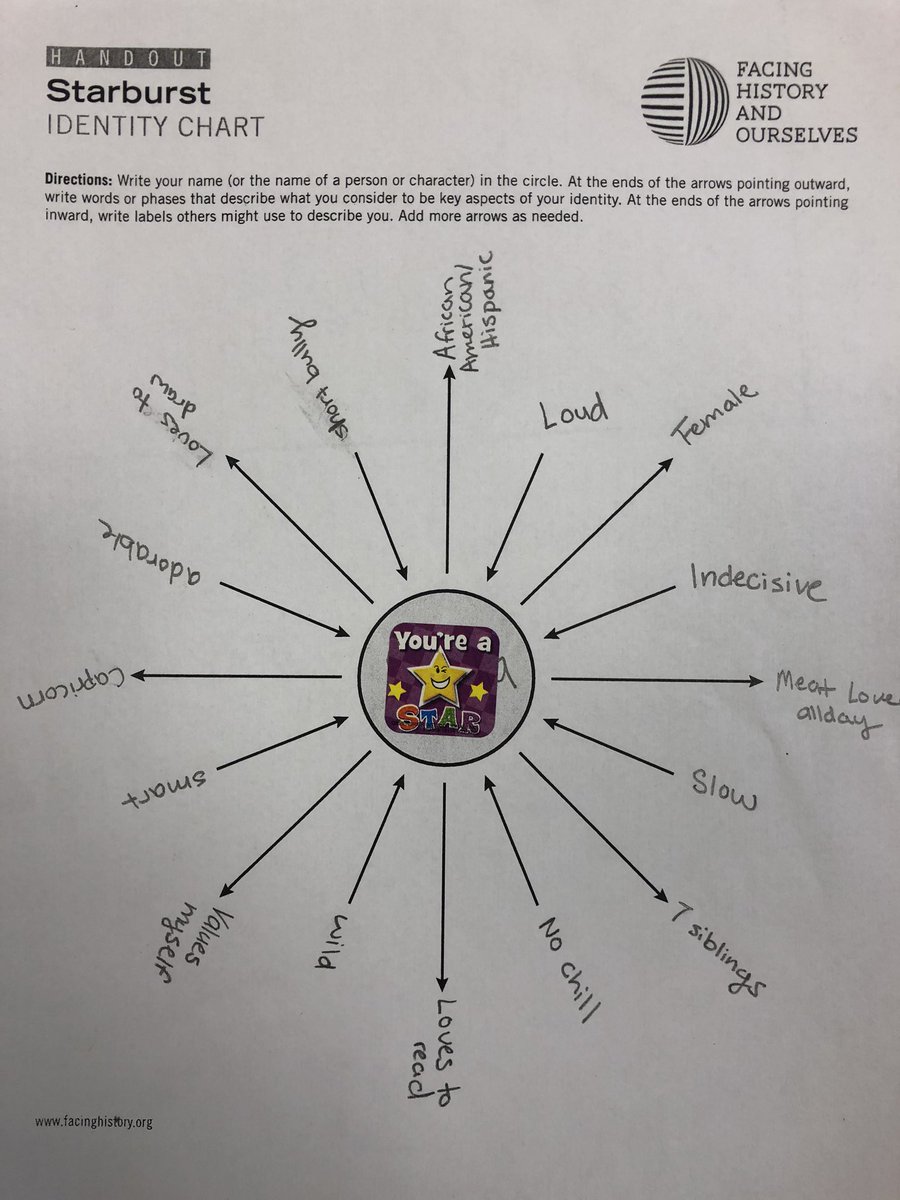 HANDOUT
Starburst
IDENTITY CHART
FACING
HISTORY
AND
OURSELVES
Directions: Write your name (or the name of a person or character) in the circle. At the ends of the arrows pointing outward,
write words or phases that describe what you consider to be key aspects of your identity. At the ends of the arrows pointing
inward, write labels others might use to describe you. Add more arrows as needed.
African
American/
Hispanic
Loud
Female
Indecisive
Meat Love
allday
Slow
7 siblings
No chill
Loves to
read
wild
Values
myself
smart
Capricorn
adorable
Loves to
draw
short bully
You're a
STAR
www.facinghistory.org